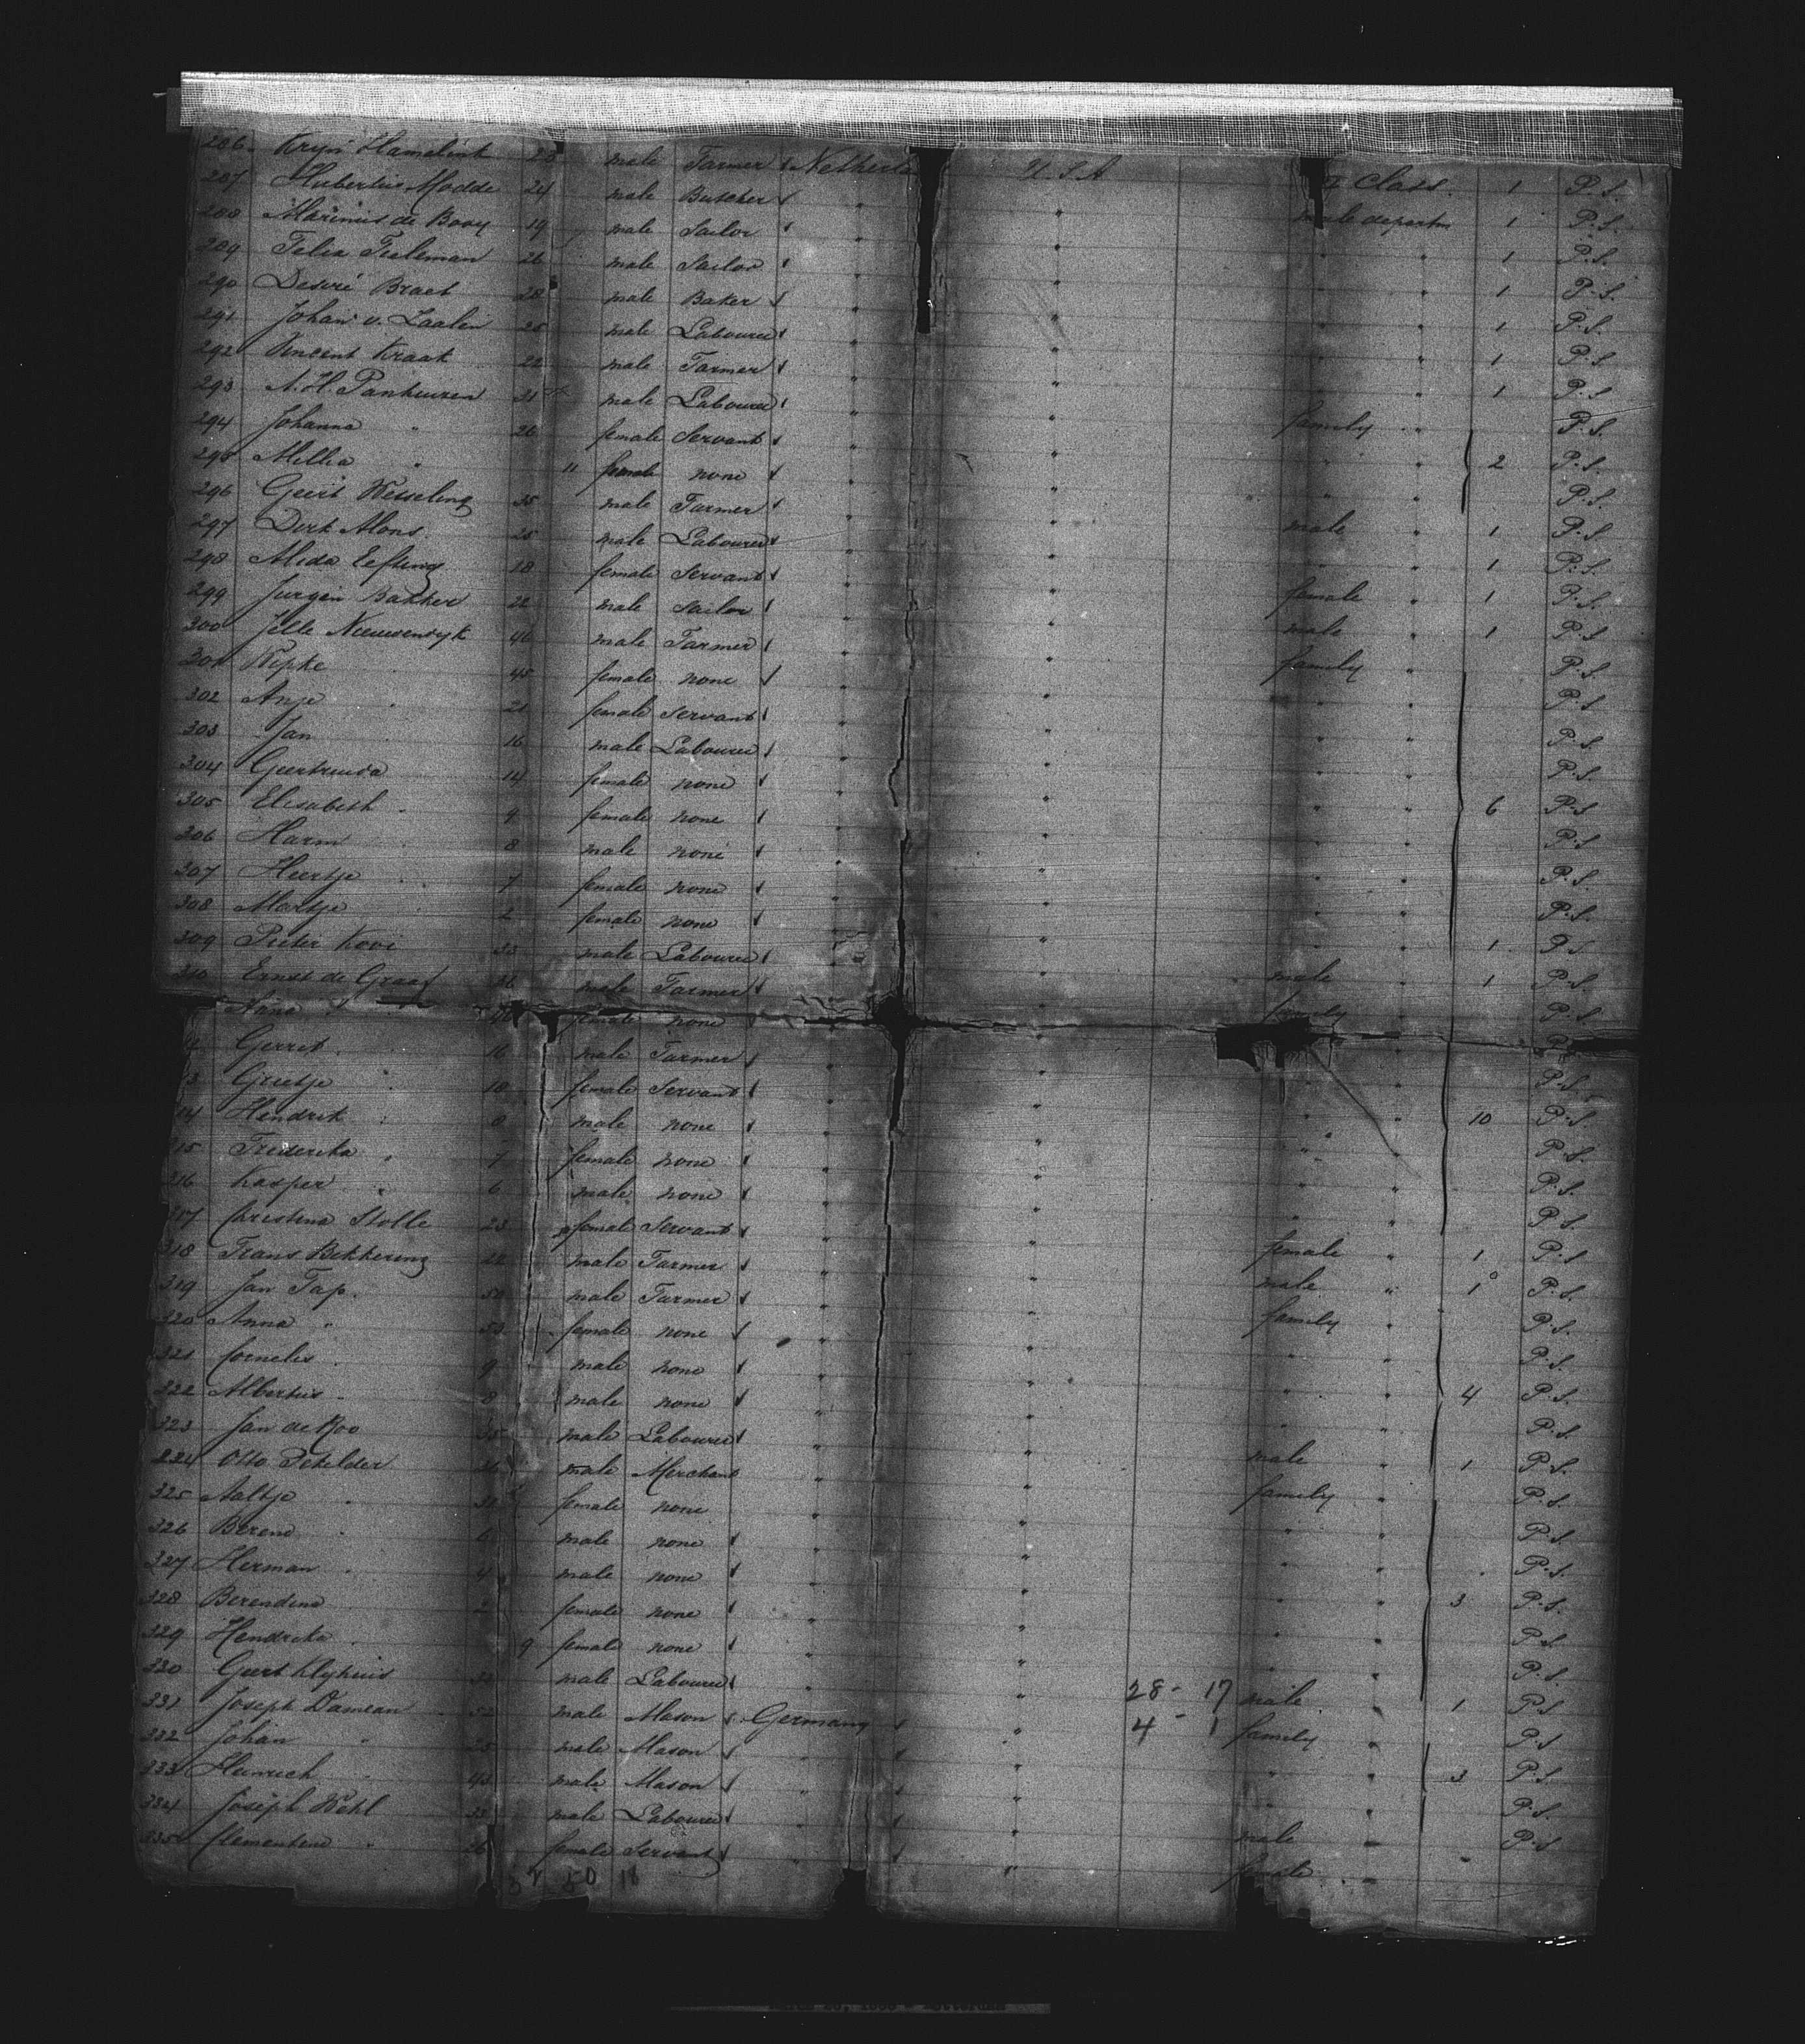 286. Kryn Hamelink 28 male Farmer Netherla U.S.A II Class. 1 P.S.
287 Hubertus Modde 24 male Butcher " " male departm 1 P.S.
288 Marinus de Booy 19 male Sailor " " " " 1 P.S.
289 Felix Tieleman 26 male Sailor " " " " 1 P.S.
290 Desiré Braet 28 male Baker " " " " 1 P.S.
291 Johan v. Laalen 25 male Labourer " " " " 1 P.S.
292 Vincent Kraak 22 male Farmer " " " " 1 P.S
293 A. H. Pankuizen 31 male Labourer " " family " P.S.
294 Johanna " 26 female Servant " " " " 2 P.S.
295 Millia " 11 female none " " " " P.S.
296 Geert Wesseling 35 male Farmer " " male " 1 P.S
297 Dirk Alons. 25 male Labourer " " " " 1 P.S.
298 Alida Eefting 18 female Servant " " female " 1 P.S.
299 Jurgen Bakker 22 male Sailor " " male " 1 P.S
300 Jelle Nieuwendyk 46 male Farmer " " family " P.S.
301 Wipke 45 female none " " " " P.S
302 Anje " 21 female Servant " " " " P.S.
303 Jan 16 male Labourer " " " " P.S.
304 Geertruida 14 female none " " " " 6 P.S
305 Elisabeth " 9 female none " " " " P.S
306 Harm 8 male none " " " " P.S.
307 Heertje " 7 female none " " " " P.S.
308 Martje " 2 female none " " " " P.S
309 Pieter Kooi 33 male Labourer " " male " 1 P.S.
310 Ernst de Graaf 36 male Farmer " " family " P.S.
Anna " female none " " P.S
12 Gerret " 16 male Farmer " " " " P.S.
13 Grietje " 10 female Servant " " " " 10 P.S.
14 Hendrik " 8 male none " " " " P.S.
15 Frederika " 7 female none " " " " P.S.
316 Kasper " 6 male none " " " " P.S.
317 Christina Stolle 23 female Servant " " female " 1 P.S
318 Frans Bekkering 22 male Farmer " " male " 1 P.S.
319 Jan Tap. 50 male Farmer " " family " P.S.
320 Anna " 53 female none " " " " P.S.
321 Cornelis " 9 male none " " " " 4 P.S.
322 Albertus " 8 male none " " " " P.S.
323 Jan de Roo 35 male Labourer " " male " 1 P.S.
324 Otto Pekelder 36 male Merchant " " family " P.S.
325 Aaltje " 31 female none " " " " P.S
326 Berend " 6 male none " " " " P.S.
327 Herman " 4 male none " " " " 3 P.S.
328 Berendina 2 female none " " " " P.S.
329 Hendrika " 9 female none " " " " P.S.
330 Geert Klyhuis 32 male Labourer " " 28 - 17 male " 1 P.S
331 Joseph Damean 52 male Mason Germany " 4 - 1 family " P.S
332 Johan " 25 male Mason " " " " 3 P.S.
333 Heinrich " 43 male Mason " " " " P.S.
334 Joseph Wehl 33 male Labourer " " male " P.S
335 Clementine " 26 female Servant " " female "
50 18